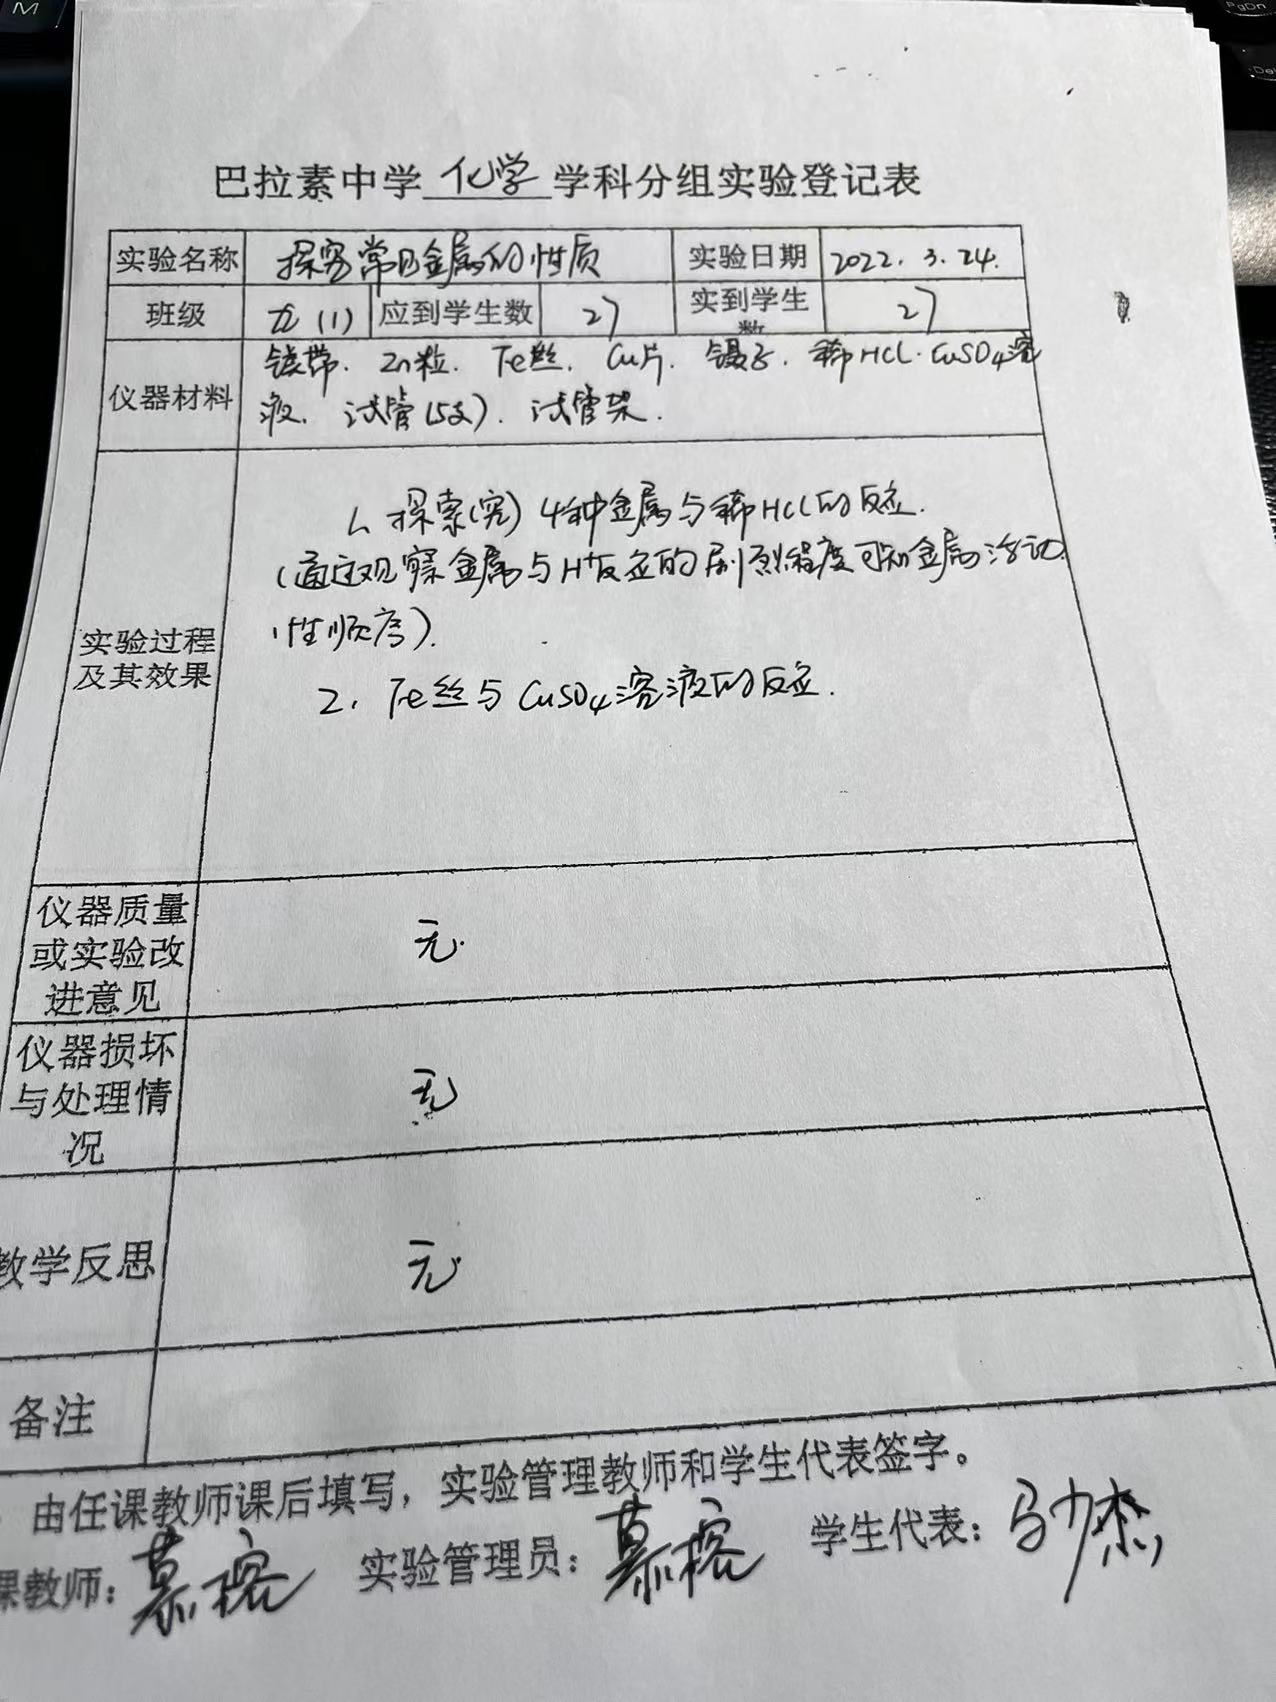 巴拉素中学 化学 学科分组实验登记表
实验名称 探究常见金属的性质 实验日期 2022.3.24.
班级 九(1) 应到学生数 27 实到学生数 27
仪器材料
镁带. Zn粒. Fe丝. Cu片. 镊子. 稀HCl. CuSO4溶
液. 试管(5支). 试管架.
实验过程
及其效果
1. 探索(究) 4种金属与稀HCl的反应.
(通过观察金属与H+反应的剧烈程度可知金属活动
性顺序).
2. Fe丝与CuSO4溶液的反应.
仪器质量
或实验改
进意见
无.
仪器损坏
与处理情
况
无
教学反思 无
备注
由任课教师课后填写，实验管理教师和学生代表签字。
课教师: 慕榕 实验管理员: 慕榕 学生代表: 马少杰
M
PgDn
Del